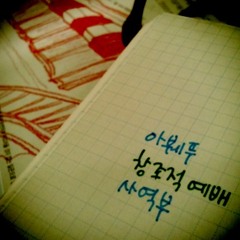 아볘푸
창조적 예배
사역부